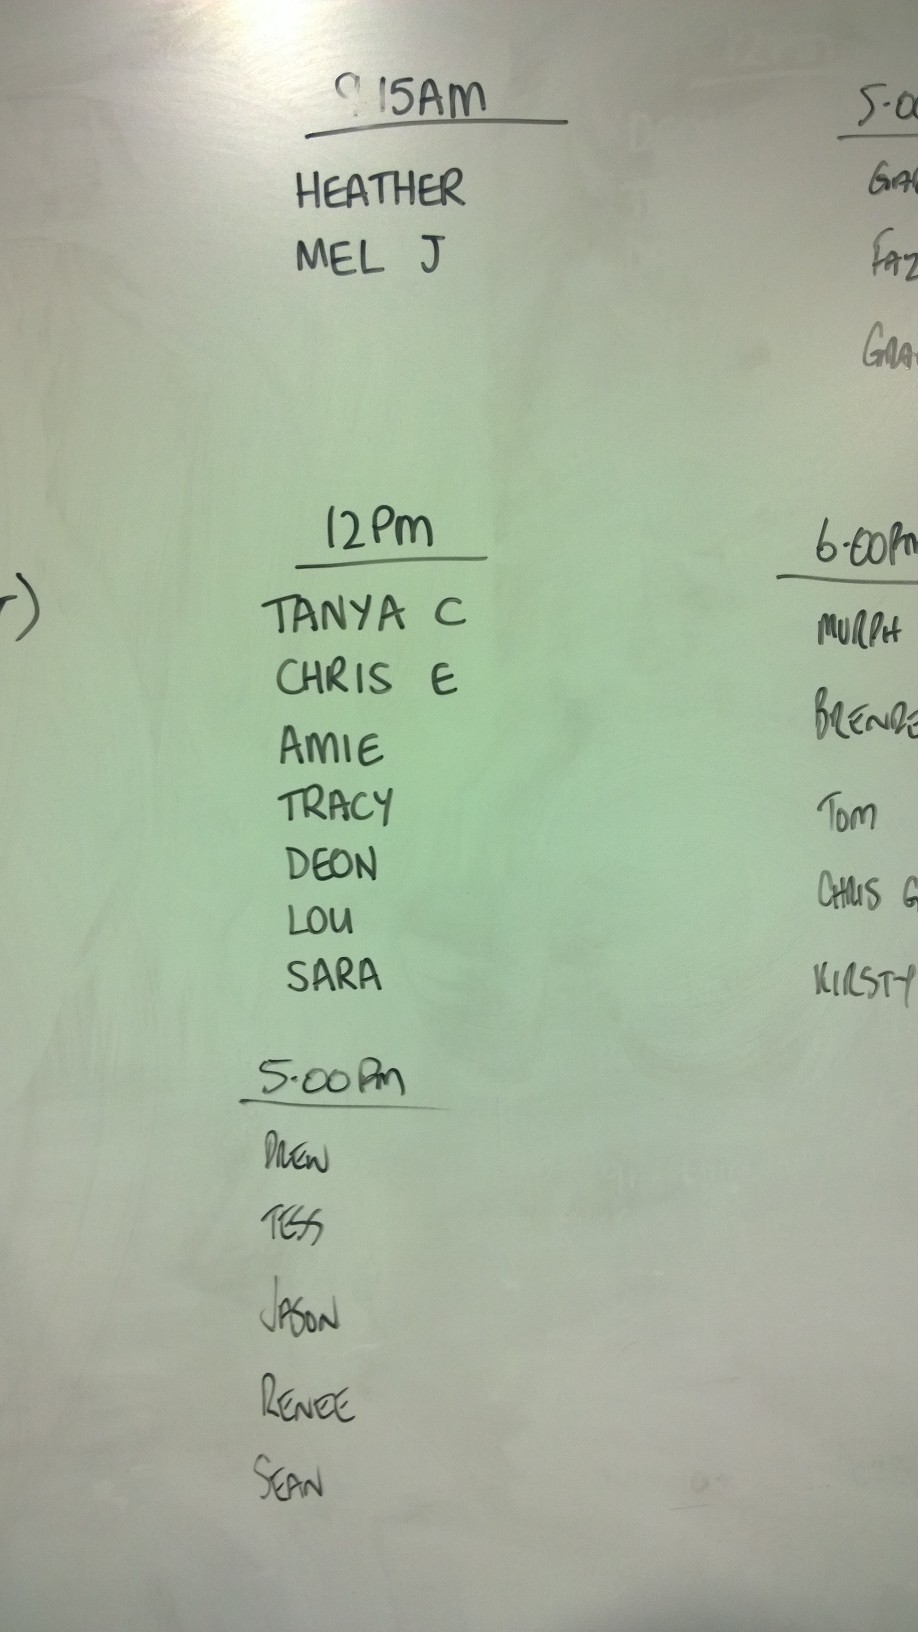 15AM
HEATHER
MEL J
12PM
TANYA C
CHRIS E
AMIE
TRACY
DEON
LOU
SARA
5.00PM
DREW
TESS
JASON
RENEE
SEAN
6.00PM
MURPH
TOM
CHRIS G
KIRSTY